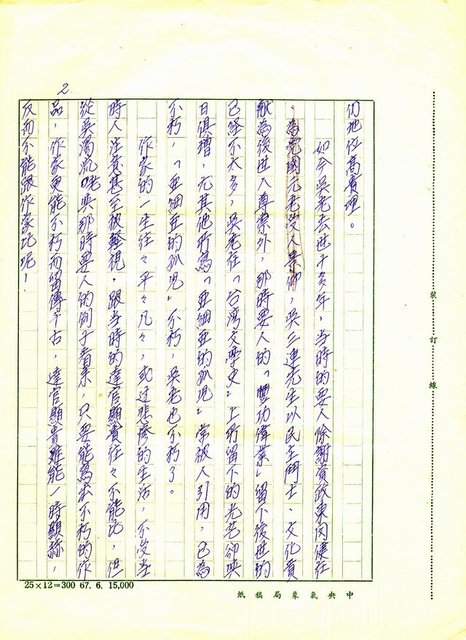 2.
們地位高貴哩。
如今吳老去世十多年，當時的要人除謝資政東閔健在
，為黨國元老受人崇仰，吳三連先生以民主鬥士、文化貢
獻為後世人尊崇外，那時要人的「豐功偉業」留下後世的
已經不太多，吳老在「台灣文學史」上所留下的光芒卻與
日俱增，尤其他所寫「亞細亞的孤兒」常被人引用，已為
不朽，「亞細亞的孤兒」不朽，吳老也不朽了。
作家的一生往々平々凡々，或過悲慘的生活，不受當
時人注意甚至被輕視，跟當時的達官顯貴往々不能比，但
從吳濁流呢與那時要人的例子看來，只要能寫出不朽的作
品，作家更能不朽而留傳千古，達官顯貴雖能一時顯赫，
反而不能跟作家比呢！
裝訂線
25×12=300 67. 6. 15,000
中央氣象局稿紙